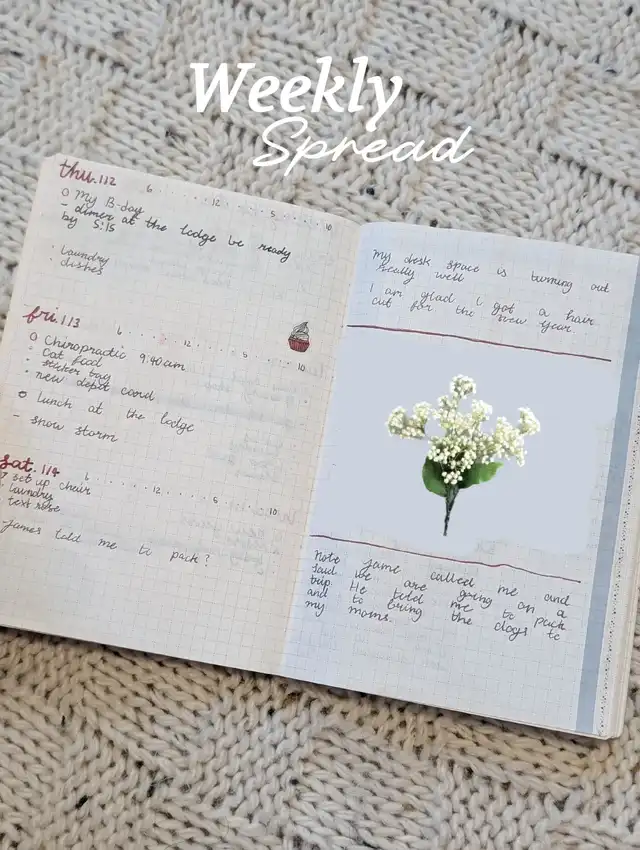 Weekly
Spread
thu. 1.12
6 12 5 10
My B-day
- dinner at the lodge be ready
by 5:15
· laundry
· dishes
fri. 1.13
6 12 5 10
Chiropractic 9:40am
· Cat food
· sticker bag
· new depit card
lunch at the lodge
- snow storm
sat. 1.14
6 12 5 10
set up chair
laundry
text rose
-James told me to pack?
My desk space is turning out
really well
I am glad I got a hair
cut for the new year.
Note Jame called me and
said we are going on a
trip. He told me to pack
and to bring the dogs to
my moms.